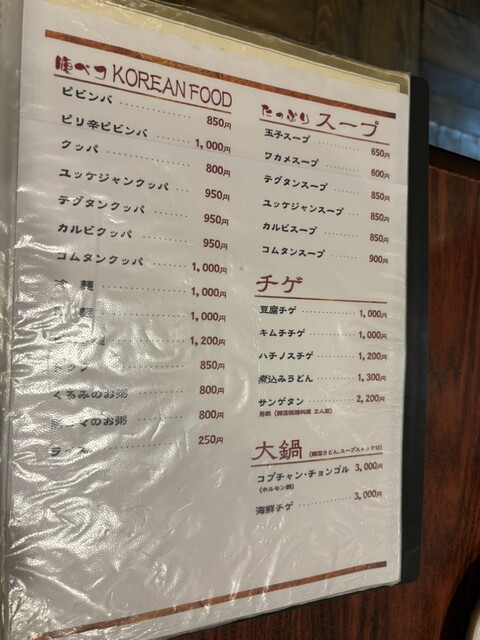 KOREAN FOOD
ビビンバ 850円
ピリ辛ビビンバ 1,000円
クッパ 800円
ユッケジャンクッパ 950円
テグタンクッパ 950円
カルビクッパ 950円
コムタンクッパ 1,000円
冷麺 1,000円
1,000円
1,200円
850円
くるみのお粥 800円
のお粥 800円
ライス 250円
たっぷり スープ
玉子スープ 650円
ワカメスープ 600円
テグタンスープ 850円
ユッケジャンスープ 850円
カルビスープ 850円
コムタンスープ 900円
チゲ
豆腐チゲ 1,000円
キムチチゲ 1,000円
ハチノスチゲ 1,200円
煮込みうどん 1,300円
サンゲタン 2,200円
大鍋
コプチャン・チョンゴル 3,000円
(ホルモン鍋)
海鮮チゲ 3,000円